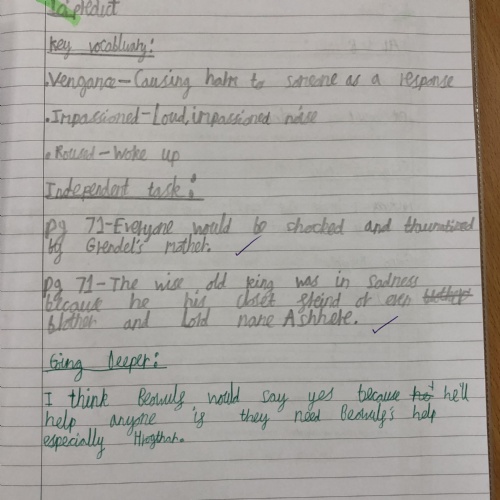 to predict
Key vocabluary:
• Vengance – Causing halm to someone as a response
• Impassioned – Loud, impassioned noise
• Roused – Woke up
Independent task:
pg 71 – Everyone would be shocked and thauratized
by Grendel's mother.
pg 71 – The wise old king was in sadness
because he his closet freind or even
brother and lord name Ashhere.
Going Deeper:
I think Beowulf would say yes because he'll
help anyone is they need Beowulf's help
especially Hrogthar.